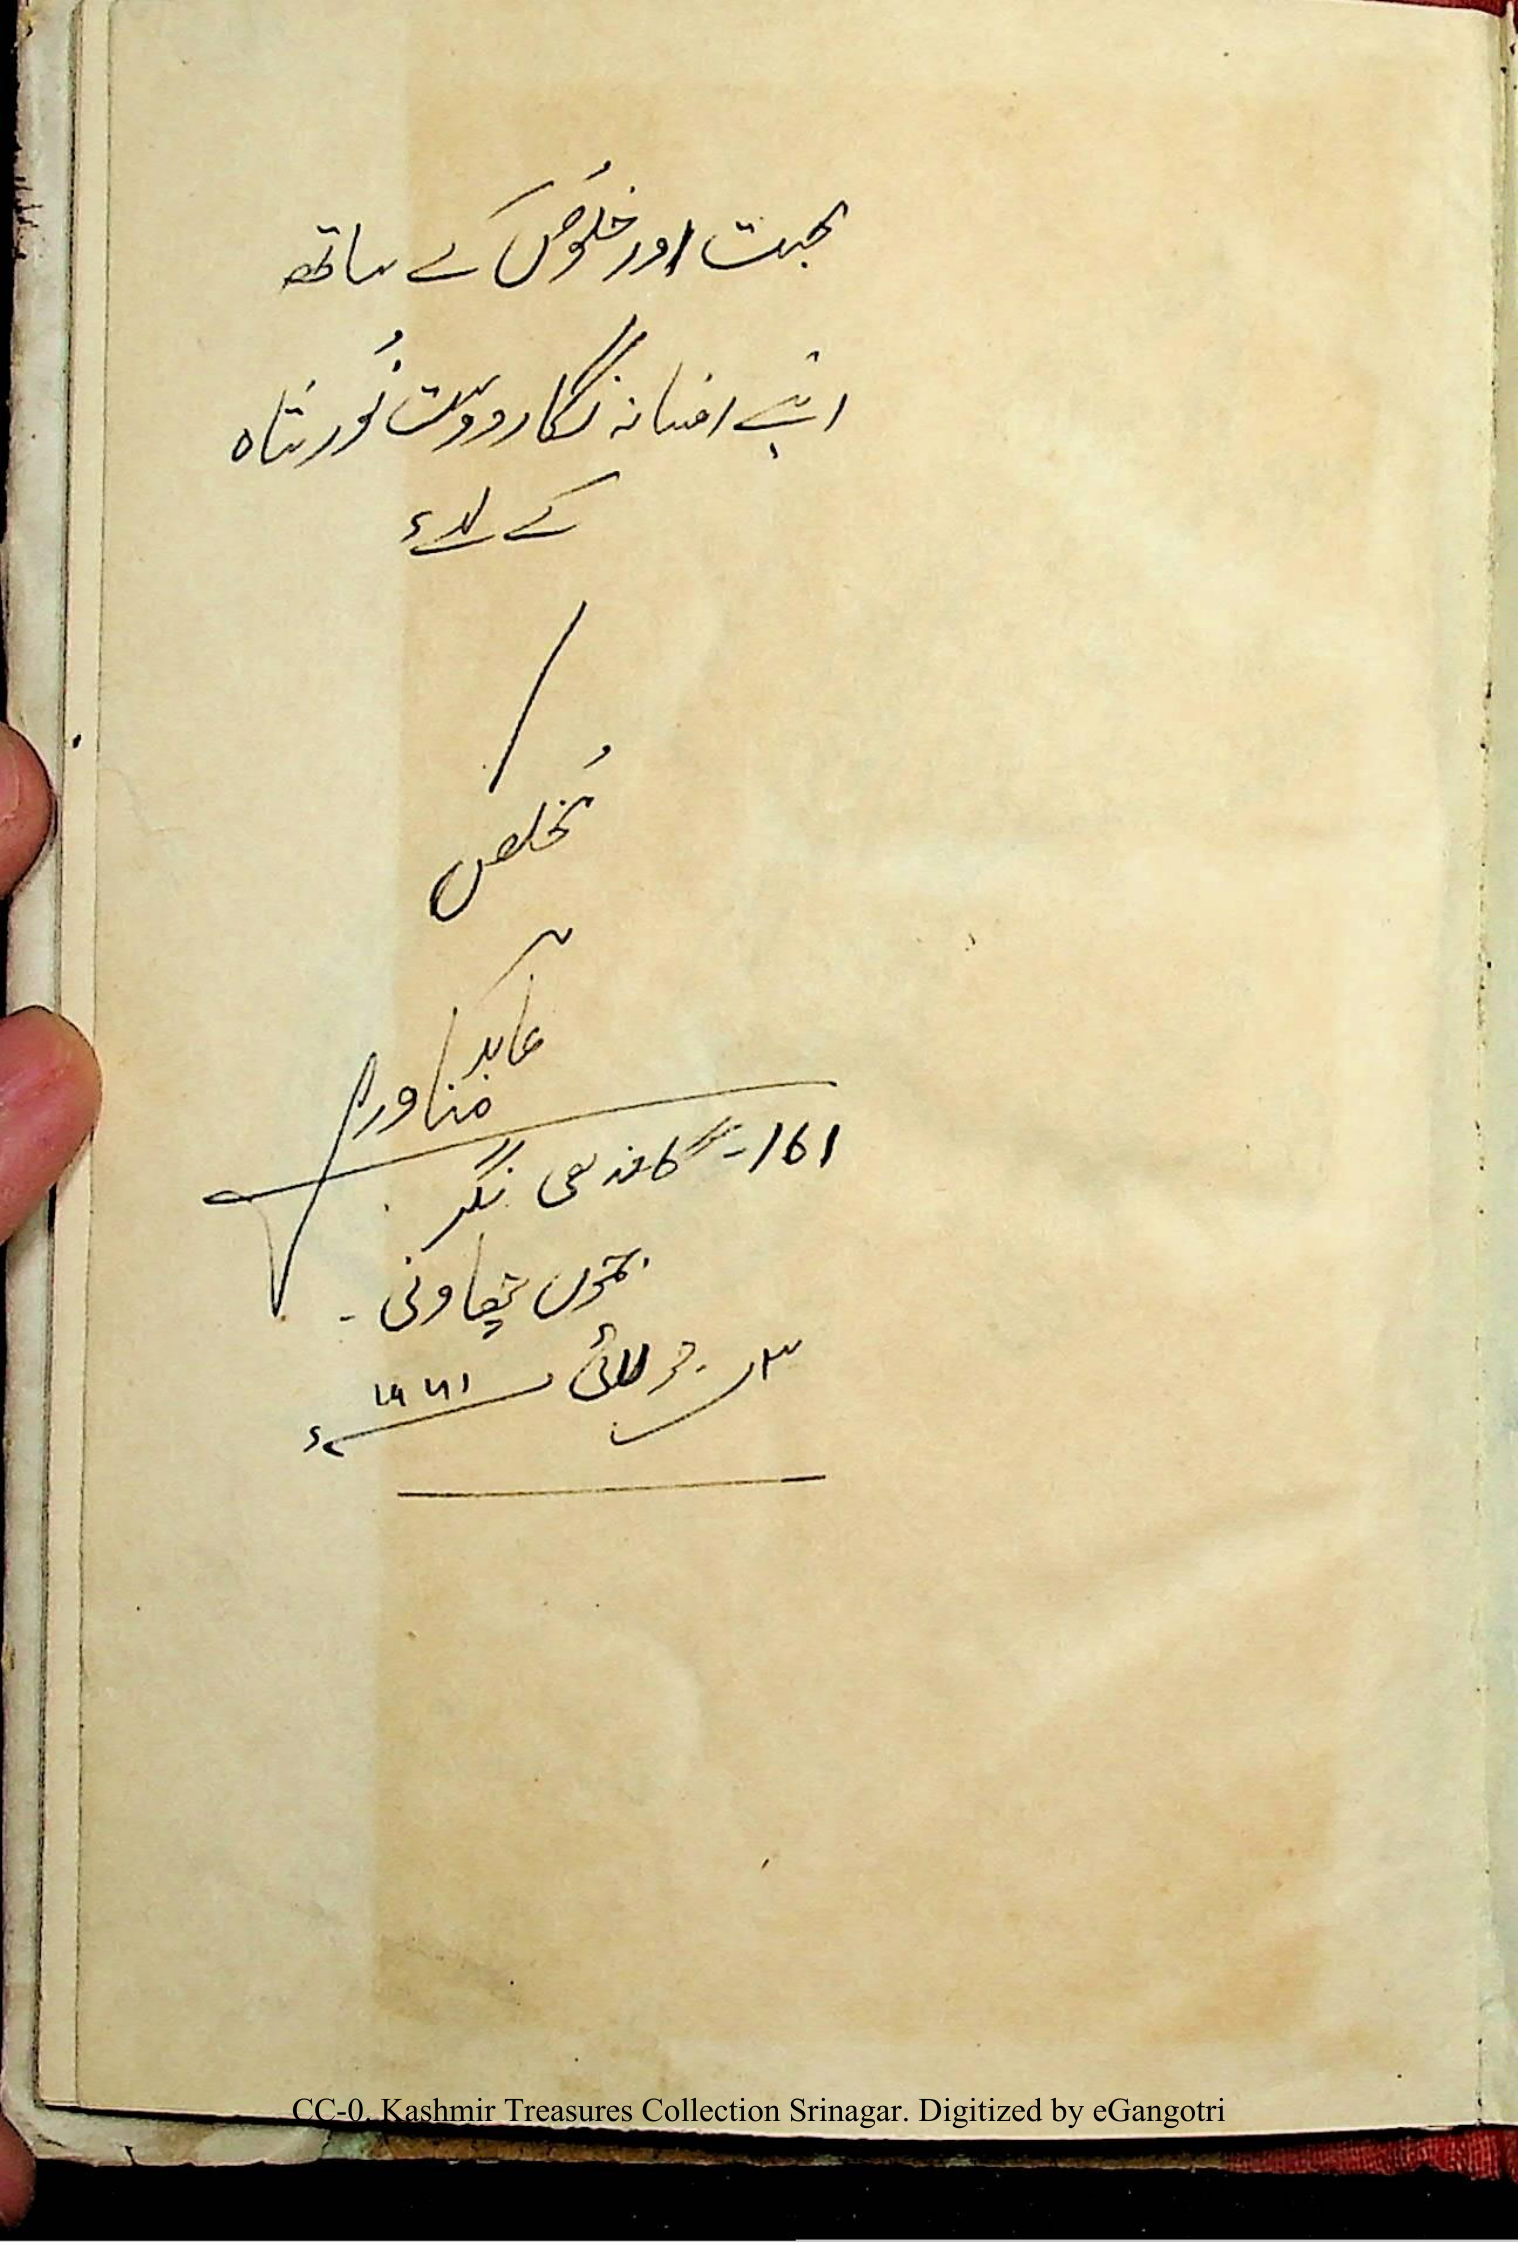 محبت اور خلوُص کے ساتھ
اپنے افسانہ نگار دوست نوُر شاہ
کے لئے
مُخلص
عابد مناوری
161- گاندھی نگر
جموں چھاونی۔
جولائی ۱۹۷۱ء
CC-0. Kashmir Treasures Collection Srinagar. Digitized by eGangotri